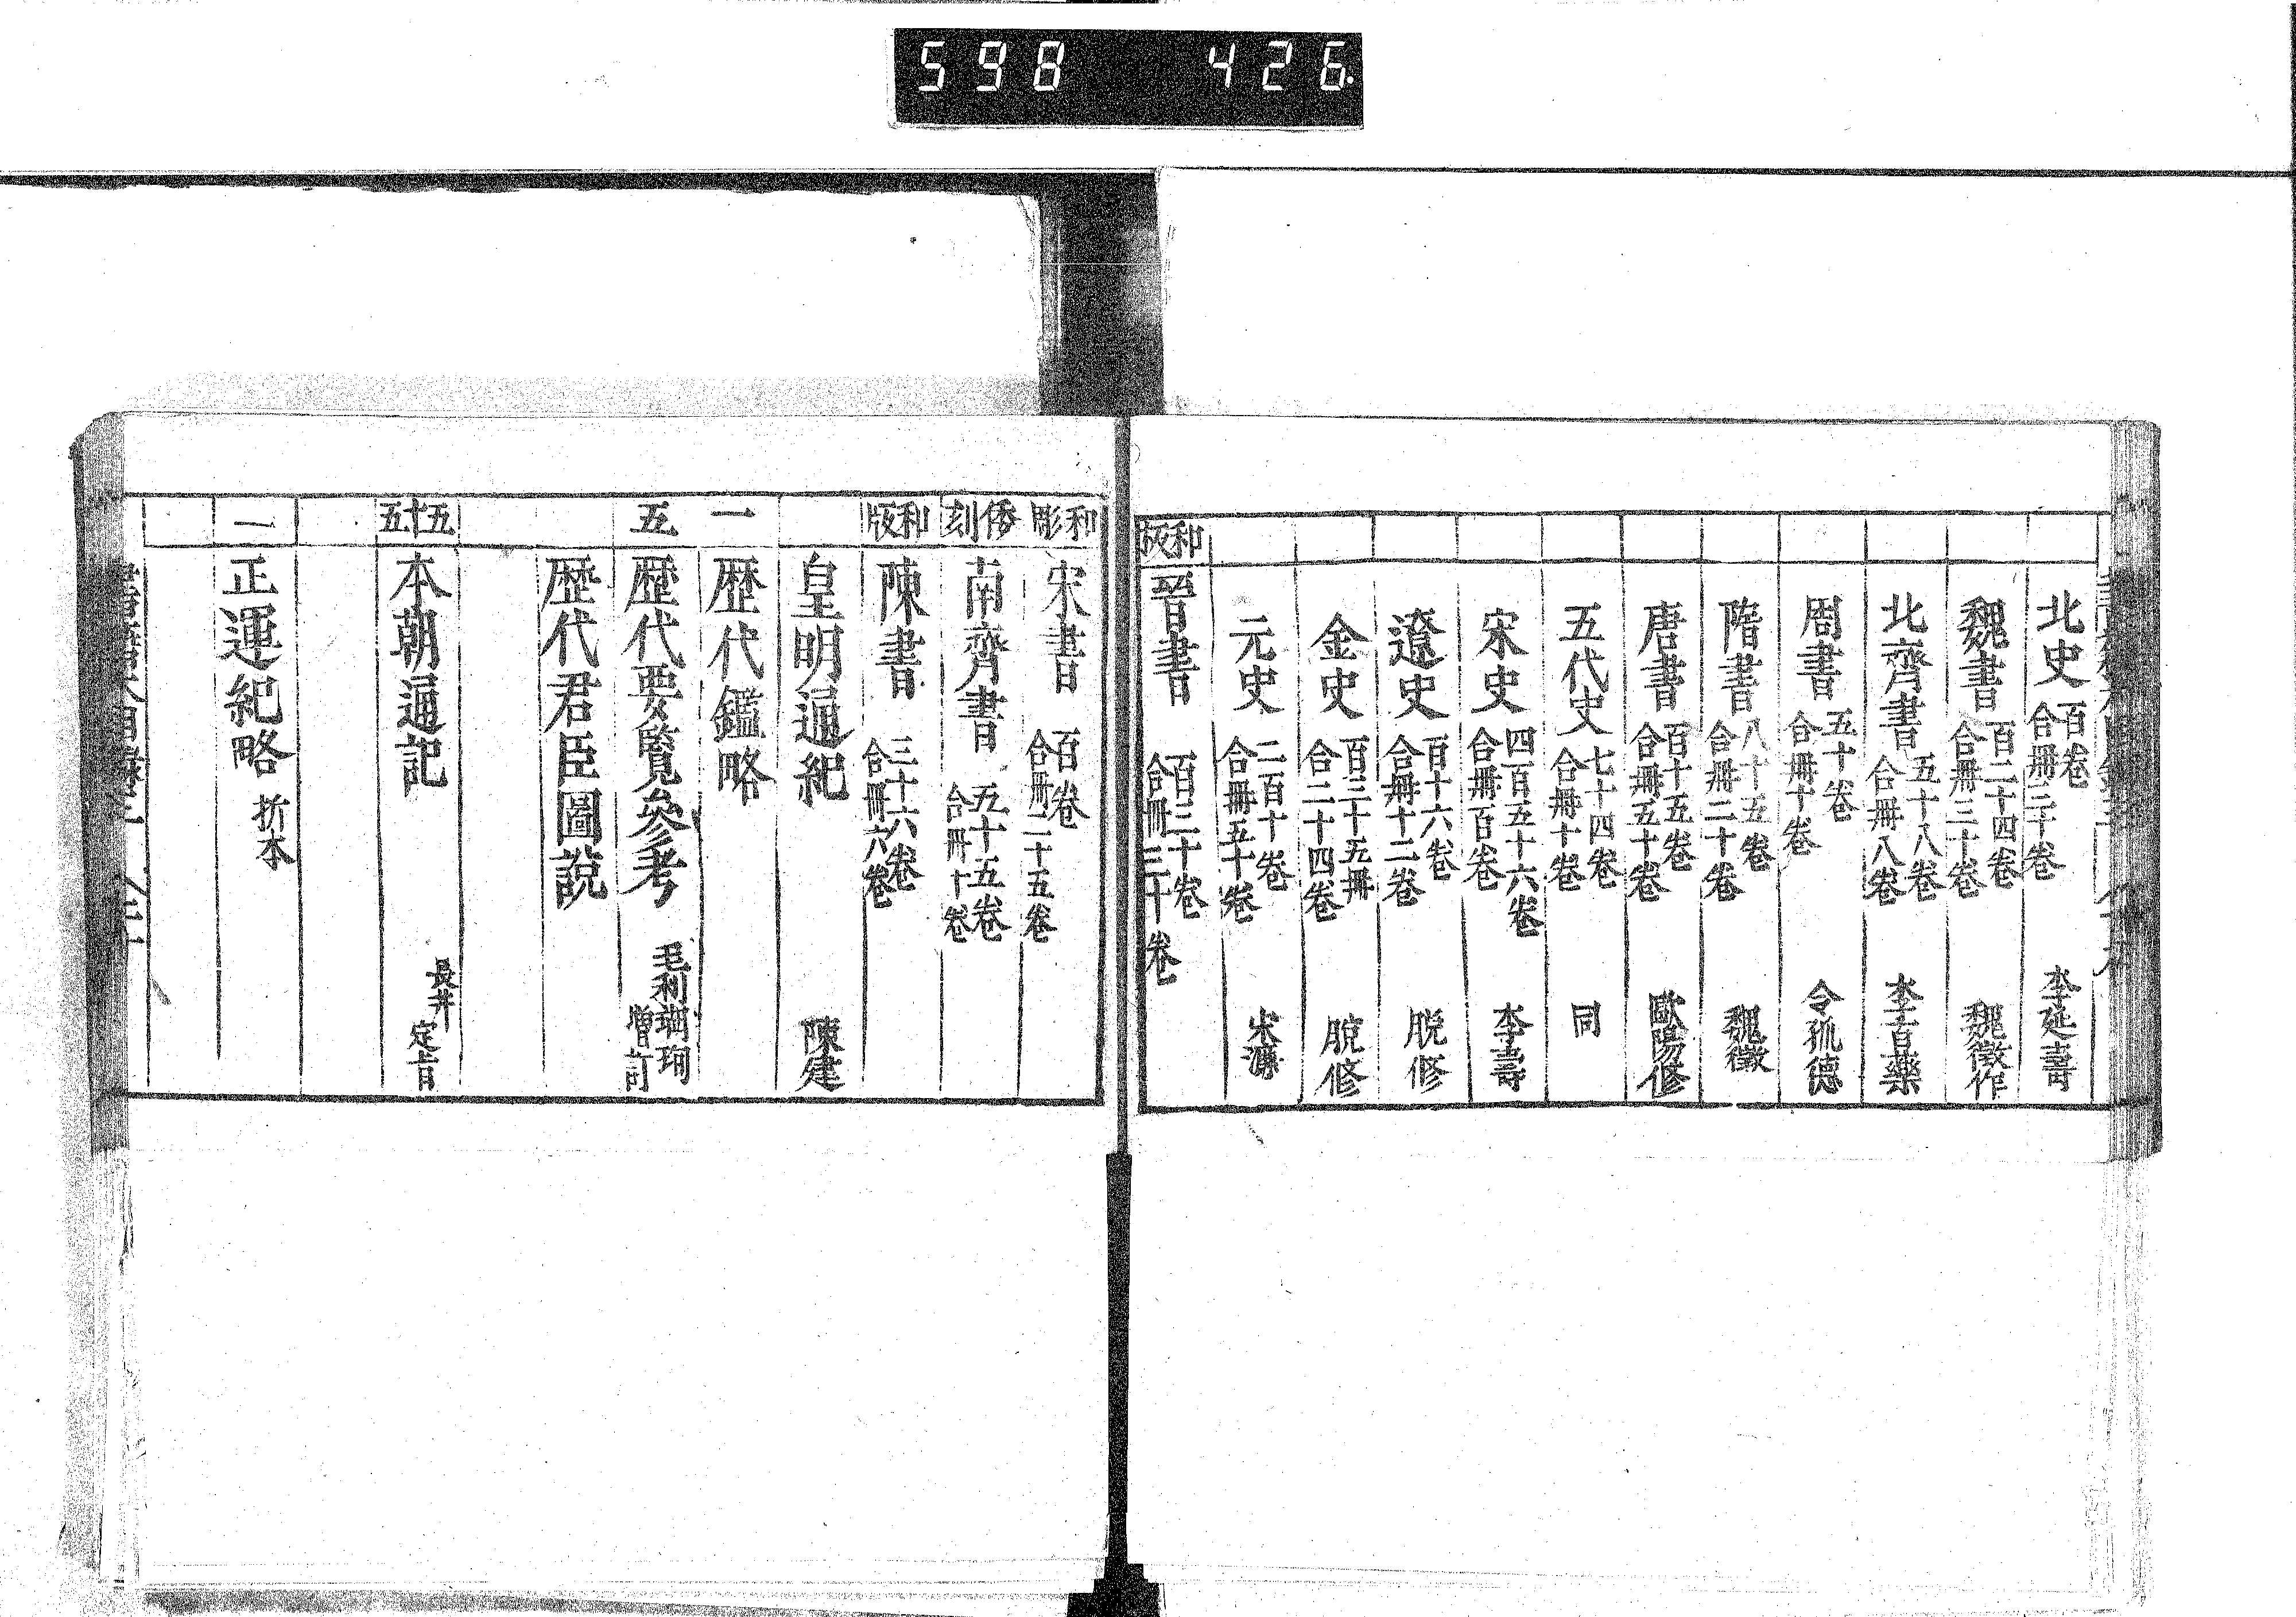 598 426.
北史 百卷 合冊三十卷 李延壽
魏書 百二十四卷 合冊三十卷 魏徵作
北齊書 五十八卷 合冊八卷 李百藥
周書 五十卷 合冊十卷 令狐德
隋書 八十五卷 合冊二十卷 魏徵
唐書 百十五卷 合冊五十卷 歐陽修
五代史 七十四卷 合冊十卷 同
宋史 四百五十六卷 合冊百卷 李壽
遼史 百十六卷 合冊十二卷 脫修
金史 百三十五冊 合二十四卷 脫修
元史 二百十卷 合冊五十卷 宋濂
和板 晉書 百三十卷 合冊三十卷
和彫 宋書 百卷 合冊二十五卷
倭刻 南齊書 五十五卷 合冊十卷
和版 陳書 三十六卷 合冊六卷
皇明通紀 陳建
一 歷代鑑略
五 歷代要覽參考 毛利瑚珣 增訂
歷代君臣圖說
五十五 本朝通記 長井 定旨
一 正運紀略 折本